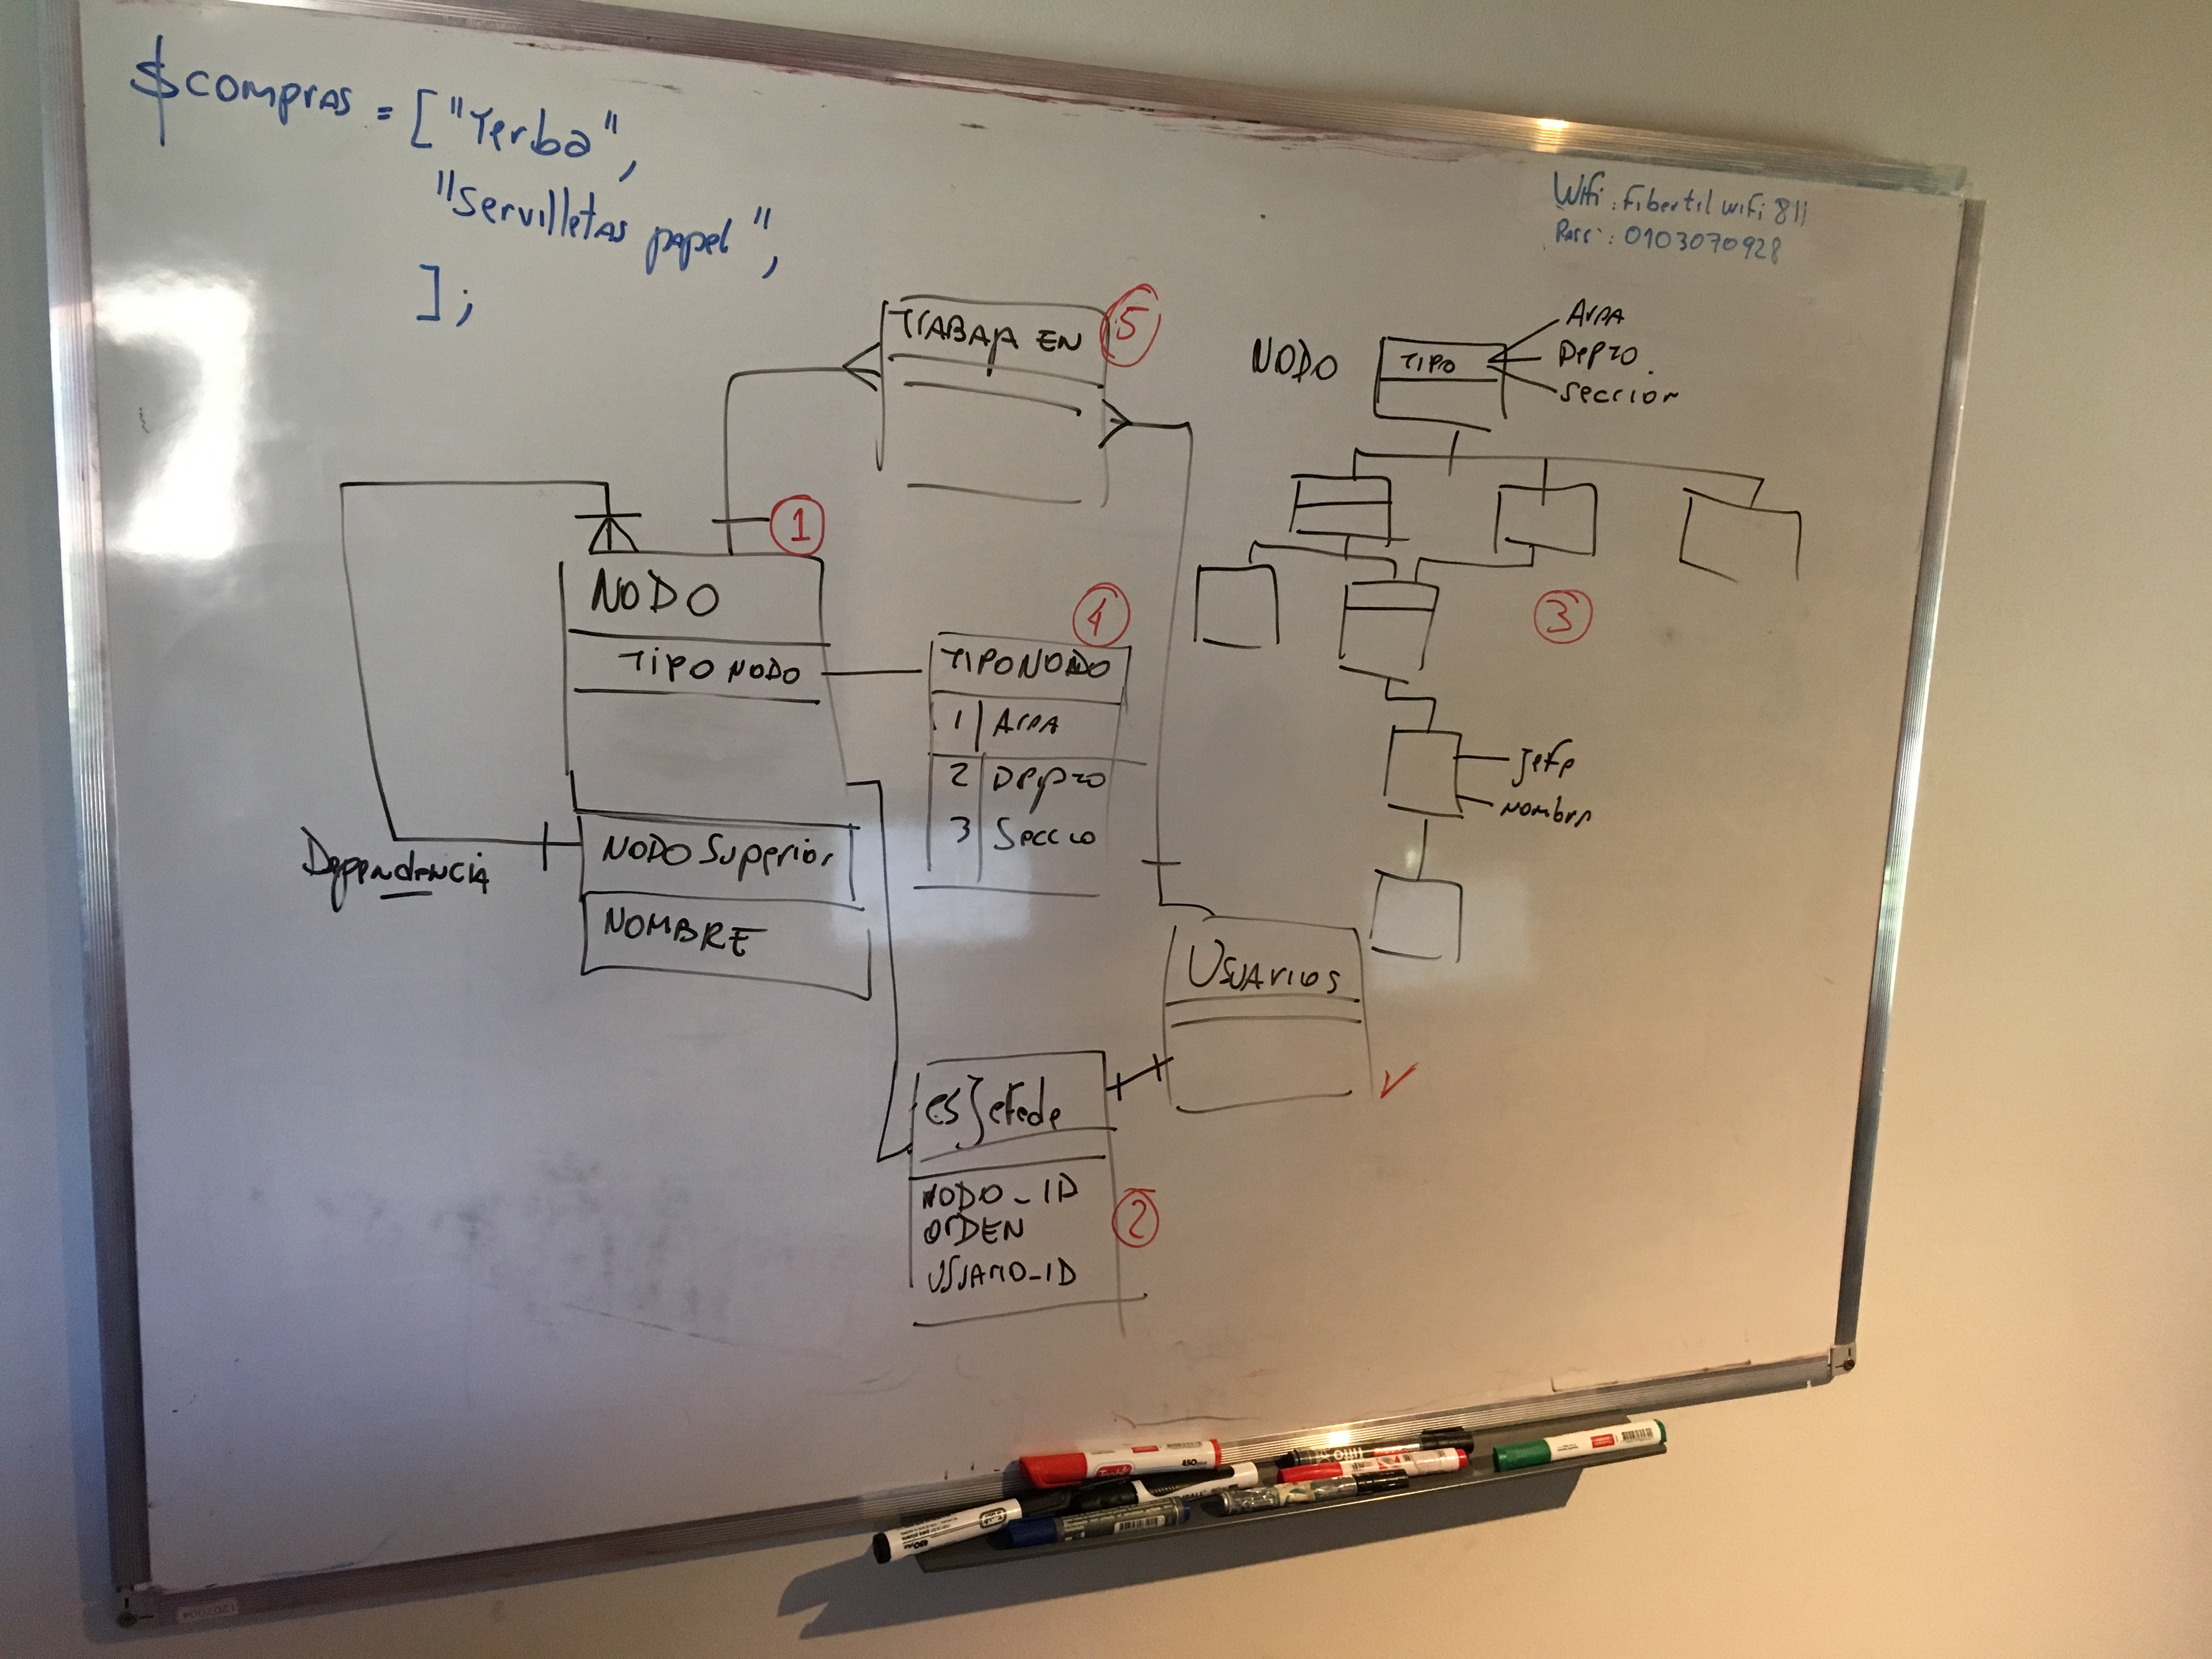 $compras = ["Yerba",
"Servilletas papel",
];
Wifi: Fibertel wifi 811
Pass: 0103070928
TRABAJA EN
5
NODO
TIPO
Area
Depto.
Seccion
1
NODO
TIPO NODO
NODO Superior
NOMBRE
Dependencia
4
TIPO NODO
1 Area
2 Depto
3 Seccio
3
Jefe
Nombre
Usuarios
es Jefe de
NODO_ID
ORDEN
USUARIO_ID
2